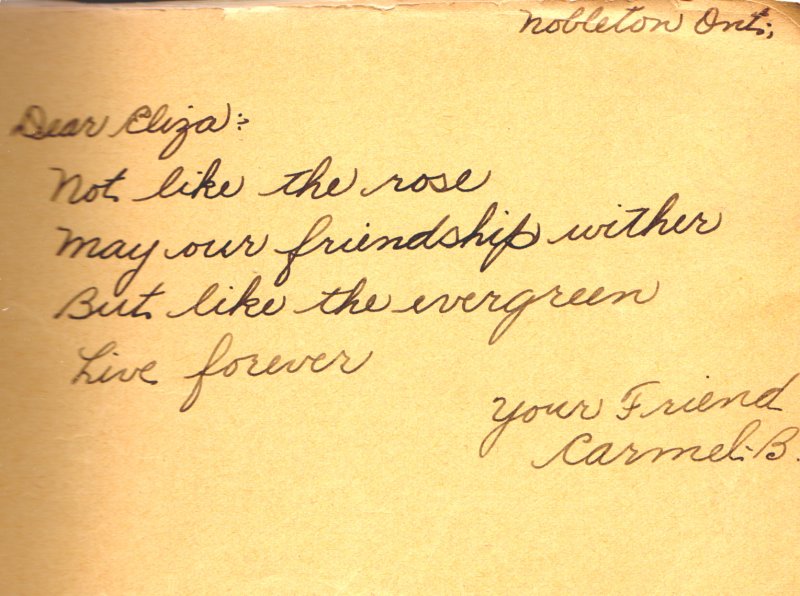 Nobleton Ont.,
Dear Eliza:
Not like the rose
May our friendship wither
But like the evergreen
Live forever
Your Friend
Carmel. B.